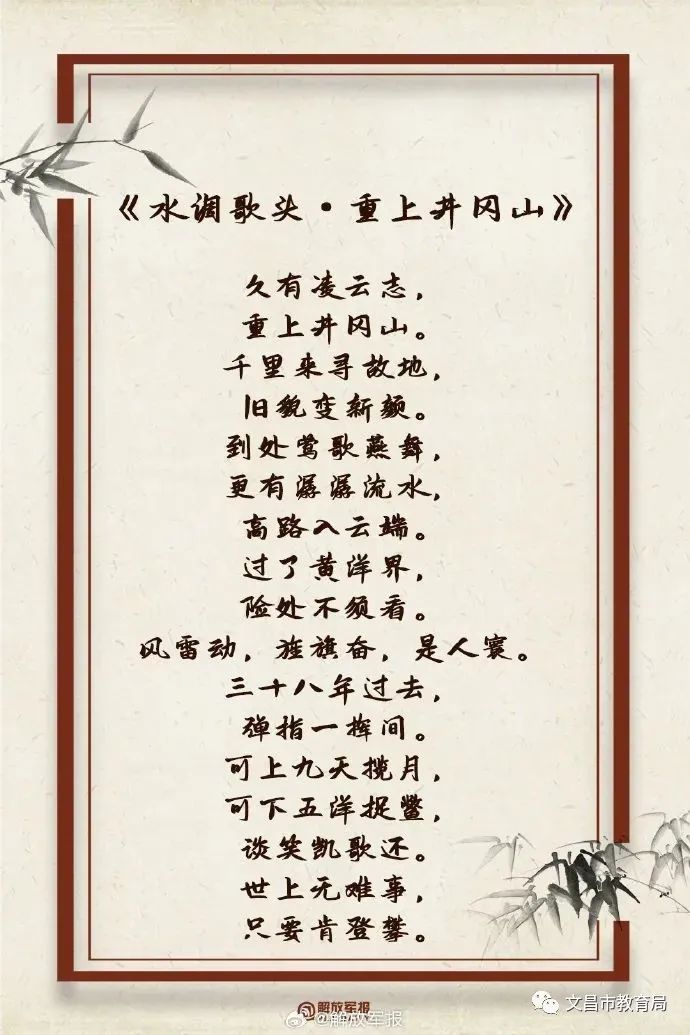 《水调歌头·重上井冈山》
久有凌云志，
重上井冈山。
千里来寻故地，
旧貌变新颜。
到处莺歌燕舞，
更有潺潺流水，
高路入云端。
过了黄洋界，
险处不须看。
风雷动，旌旗奋，是人寰。
三十八年过去，
弹指一挥间。
可上九天揽月，
可下五洋捉鳖，
谈笑凯歌还。
世上无难事，
只要肯登攀。
@解放军报
@解放军报
文昌市教育局